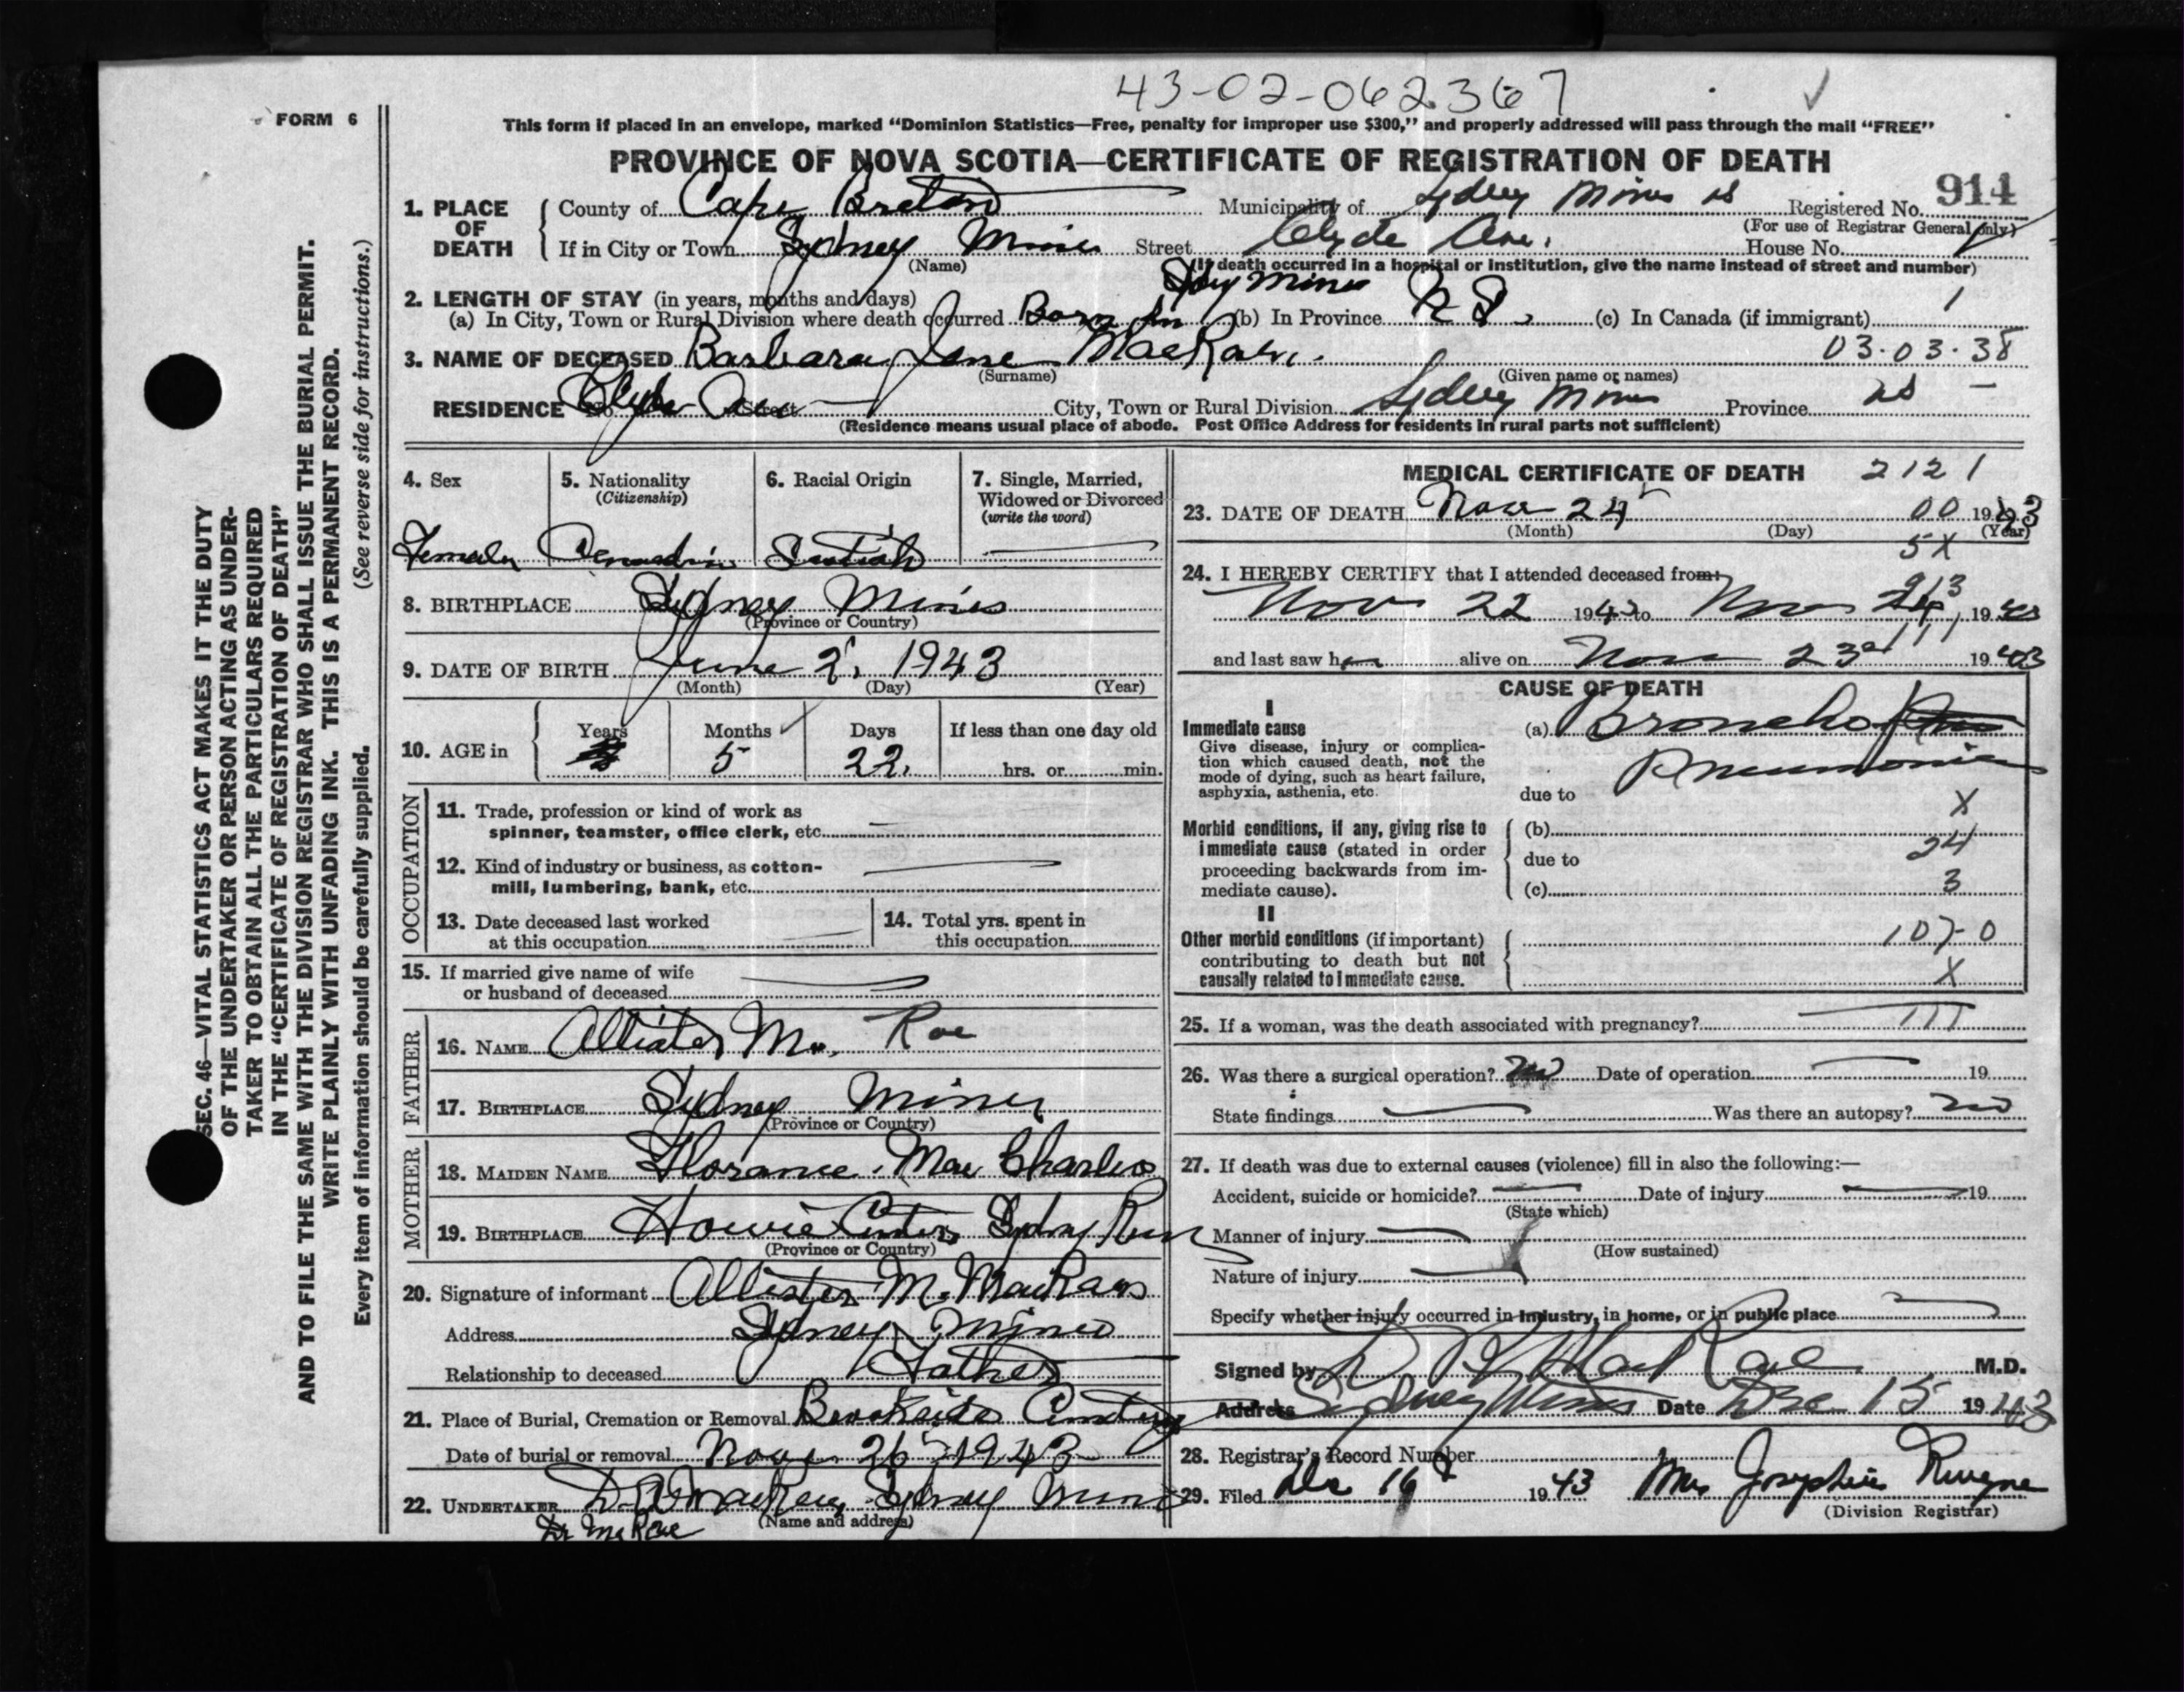 43-02-062367
FORM 6
This form if placed in an envelope, marked “Dominion Statistics—Free, penalty for improper use $300,” and properly addressed will pass through the mail “FREE”
PROVINCE OF NOVA SCOTIA—CERTIFICATE OF REGISTRATION OF DEATH
914
1. PLACE OF DEATH
County of Cape Breton Municipality of Sydney Mines NS Registered No.
(For use of Registrar General only)
If in City or Town Sydney Mines Street Clyde Ave. House No.
(Name) (If death occurred in a hospital or institution, give the name instead of street and number)
2. LENGTH OF STAY (in years, months and days) Mines
(a) In City, Town or Rural Division where death occurred Born in (b) In Province N S. (c) In Canada (if immigrant)
3. NAME OF DECEASED Barbara Jane MacRae. 03.03.38
(Surname) (Given name or names)
RESIDENCE No. Clyde Ave Street City, Town or Rural Division Sydney Mines Province NS
(Residence means usual place of abode. Post Office Address for residents in rural parts not sufficient)
4. Sex 5. Nationality (Citizenship) 6. Racial Origin 7. Single, Married, Widowed or Divorced (write the word)
Female Canadian Scotish
8. BIRTHPLACE Sydney Mines
(Province or Country)
9. DATE OF BIRTH June 2, 1943
(Month) (Day) (Year)
10. AGE in Years Months Days If less than one day old
5 22 hrs. or min.
OCCUPATION
11. Trade, profession or kind of work as
spinner, teamster, office clerk, etc.
12. Kind of industry or business, as cotton-
mill, lumbering, bank, etc.
13. Date deceased last worked
at this occupation
14. Total yrs. spent in
this occupation
15. If married give name of wife
or husband of deceased
FATHER
16. NAME Allister M. Rae
17. BIRTHPLACE Sydney Mines
(Province or Country)
MOTHER
18. MAIDEN NAME Florance Mae Charles
19. BIRTHPLACE Howie Center Sydney River
(Province or Country)
20. Signature of informant Allister M. MacRae
Address Sydney Mines
Relationship to deceased Father
21. Place of Burial, Cremation or Removal Brookside Cemetery
Date of burial or removal Nov 26 1943
22. UNDERTAKER D. A. MacRae, Sydney Mines
(Name and address)
Dr McRae
MEDICAL CERTIFICATE OF DEATH 2121
23. DATE OF DEATH Nov 24 00 1943
(Month) (Day) (Year)
5X
24. I HEREBY CERTIFY that I attended deceased from:
Nov 22 1943 to Nov 24, 1943
and last saw her alive on Nov 23rd 1943
CAUSE OF DEATH
I
Immediate cause
Give disease, injury or complica-
tion which caused death, not the
mode of dying, such as heart failure,
asphyxia, asthenia, etc.
(a) Broncho
Pneumonia
due to
X
Morbid conditions, if any, giving rise to
immediate cause (stated in order
proceeding backwards from im-
mediate cause).
(b)
due to 24
(c) 3
II
Other morbid conditions (if important)
contributing to death but not
causally related to immediate cause.
107-0
X
25. If a woman, was the death associated with pregnancy?
26. Was there a surgical operation? No Date of operation 19
State findings Was there an autopsy? No
27. If death was due to external causes (violence) fill in also the following:—
Accident, suicide or homicide? Date of injury 19
(State which)
Manner of injury
(How sustained)
Nature of injury
Specify whether injury occurred in industry, in home, or in public place
Signed by MacRae M.D.
Address Sydney Mines Date Dec 15 1943
28. Registrar's Record Number
29. Filed Dec 16 1943 Mrs Josephine
(Division Registrar)
SEC. 46—VITAL STATISTICS ACT MAKES IT THE DUTY
OF THE UNDERTAKER OR PERSON ACTING AS UNDER-
TAKER TO OBTAIN ALL THE PARTICULARS REQUIRED
IN THE “CERTIFICATE OF REGISTRATION OF DEATH”
AND TO FILE THE SAME WITH THE DIVISION REGISTRAR WHO SHALL ISSUE THE BURIAL PERMIT.
WRITE PLAINLY WITH UNFADING INK. THIS IS A PERMANENT RECORD.
Every item of information should be carefully supplied. (See reverse side for instructions.)